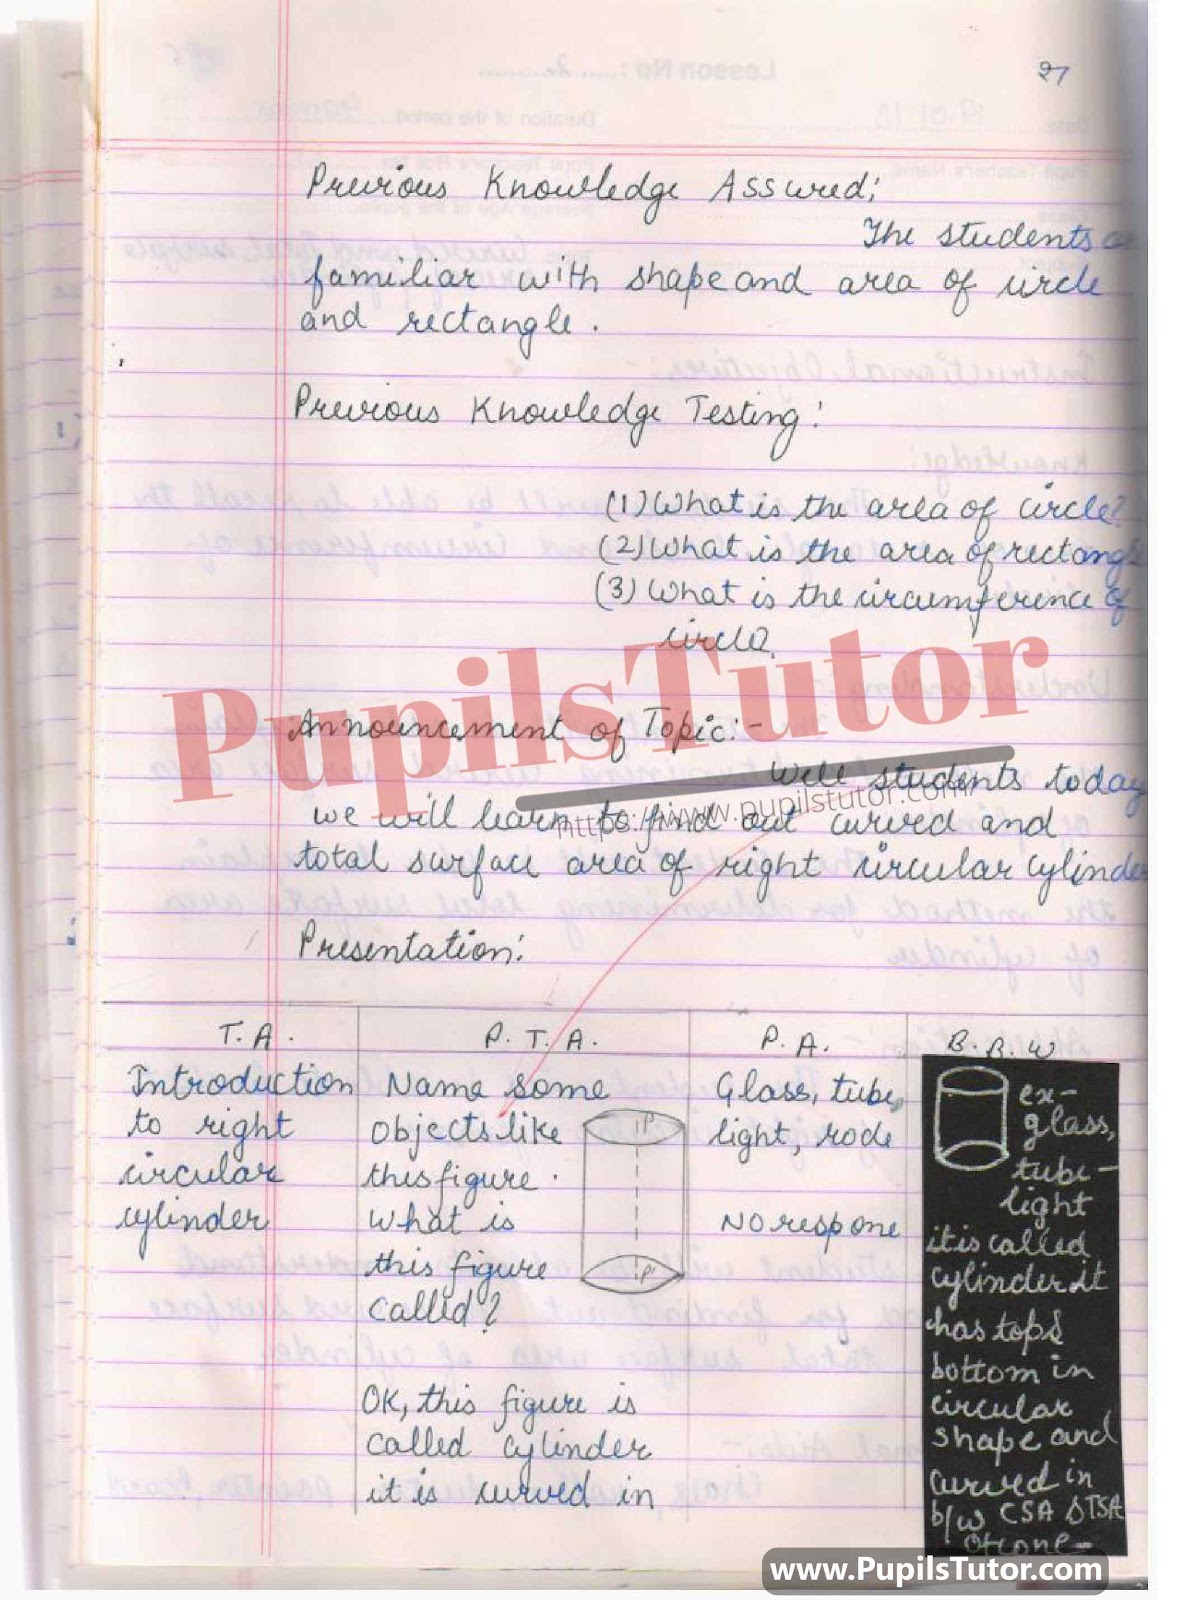 27
Previous Knowledge Assured;
The students
familiar with shape and area of circle
and rectangle.
Previous Knowledge Testing:
(1) What is the area of circle?
(2) What is the area of rectangle
(3) What is the circumference of
circle?
Announcement of Topic:-
Well students today
we will learn to find out curved and
total surface area of right circular cylinder
Presentation:
T. A.
P. T. A.
P. A.
B. B. W
Introduction
to right
circular
cylinder
Name some
objects like
this figure.
What is
this figure
called?
OK, this figure is
called cylinder
it is curved in
P
P'
Glass, tube,
light, rode
No respone
ex-
glass,
tube-
light
it is called
cylinder it
has top &
bottom in
circular
shape and
curved in
b/w CSA & TSA
PupilsTutor
https://www.pupilstutor.com
www.PupilsTutor.com